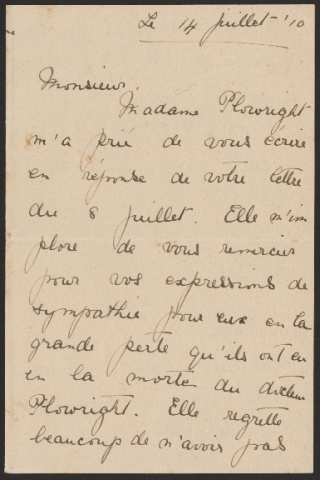 Le 14 juillet - '10
Monsieur,
Madame Plowright
m'a prié de vous écrire
en réponse de votre lettre
du 8 juillet. Elle m'im
plore de vous remercier
pour vos expressions de
sympathie pour eux en la
grande perte qu'ils ont eu
en la morte du docteur
Plowright. Elle regrette
beaucoup de n'avoir pas